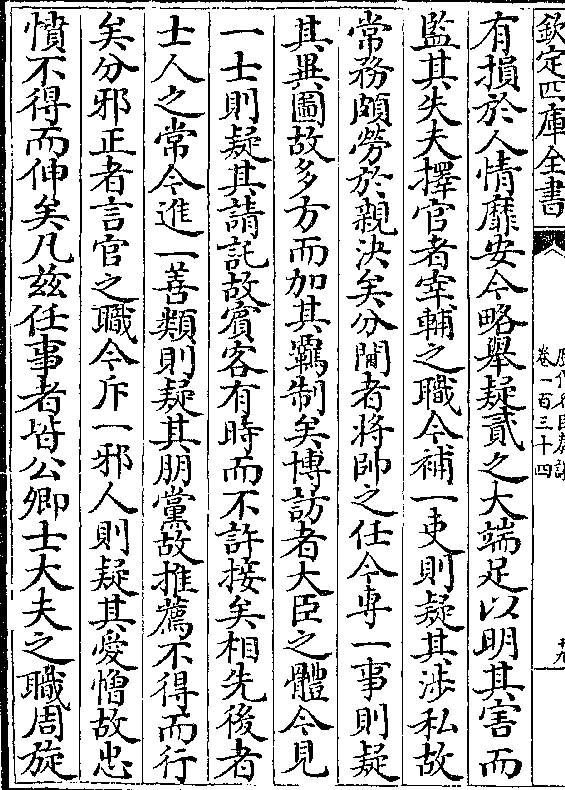 欽定四庫全書
歷代名臣奏議
卷一百三十四
十九
有損於人情靡安今略舉疑貳之大端足以明其害而
監其失夫擇官者宰輔之職今補一吏則疑其涉私故
常務頗勞於親決矣分閫者將帥之任今專一事則疑
其異圖故多方而加其羈制矣博訪者大臣之體今見
一士則疑其請託故賓客有時而不許接矣相先後者
士人之常今進一善類則疑其朋黨故推薦不得而行
矣分邪正者言官之職今斥一邪人則疑其愛憎故忠
憤不得而伸矣凡兹任事者皆公卿士大夫之職周旋